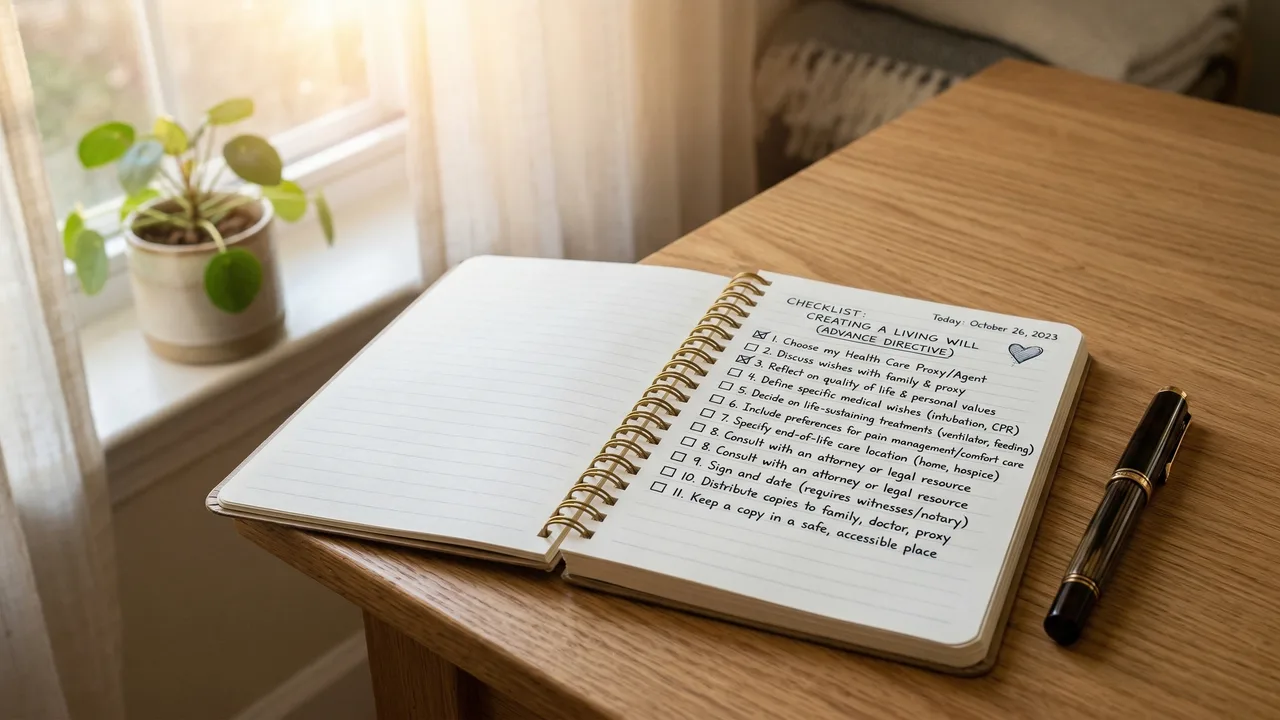 CHECKLIST:
CREATING A LIVING WILL
(ADVANCE DIRECTIVE)
Today: October 26, 2023
☒ 1. Choose my Health Care Proxy/Agent
☐ 2. Discuss wishes with family & proxy
☒ 3. Reflect on quality of life & personal values
☐ 4. Define specific medical wishes (intubation, CPR)
☐ 5. Decide on life-sustaining treatments (ventilator, feeding)
☐ 6. Include preferences for pain management/comfort care
☐ 7. Specify end-of-life care location (home, hospice)
☐ 8. Consult with an attorney or legal resource
☐ 8. Consult with an attorney or legal resource
☐ 9. Sign and date (requires witnesses/notary)
☐ 10. Distribute copies to family, doctor, proxy
☐ 11. Keep a copy in a safe, accessible place